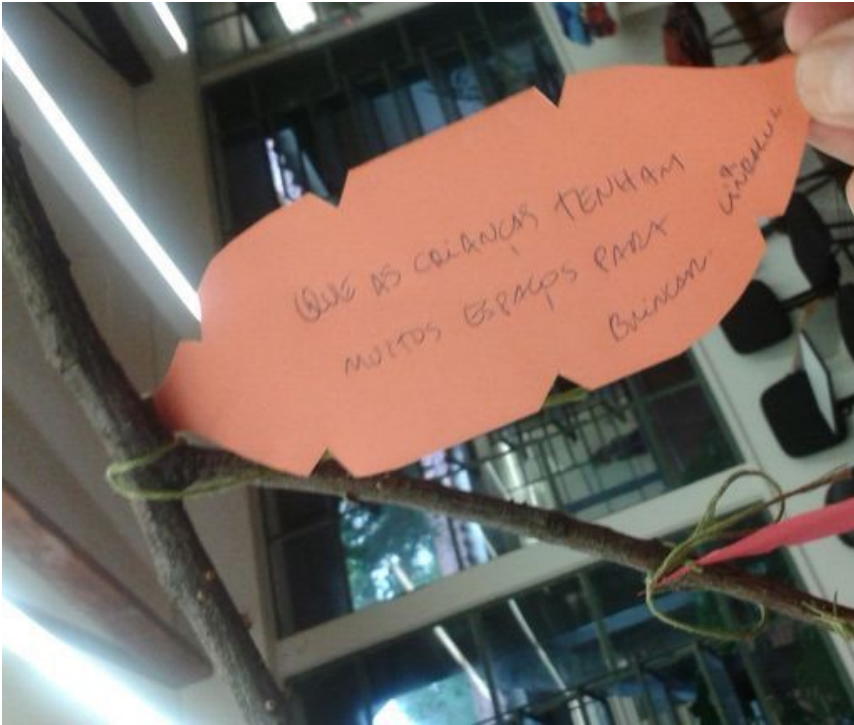 QUE AS CRIANÇAS TENHAM
MUITOS ESPAÇOS PARA
BRINCAR.